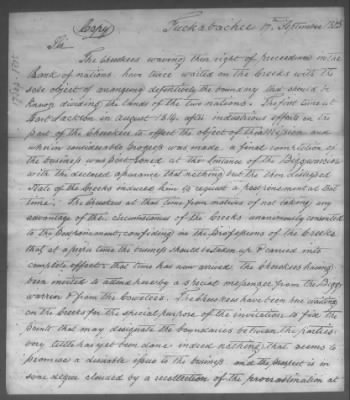 (Copy) Tuckabachee 17th September 1815
Sir
The Cherokees waveing their right of precedence in the
Rank of nations, have twice waited on the Creeks with the
sole object of arrangeing definitively the boundary that should be
known dividing the lands of the two nations. The first time at
Fort Jackson in August 1814. after industrious efforts on the
part of the Cherokees to effect the object of their Mission and
wherein considerable progress was made a final completion of
the business was postponed at the instance of the Bigg warrior
with the declared assurance that nothing but the then
State of the Creeks induced him to request a postponement at that
time. The Cherokees at that time from motives of not taking any
advantage of the circumstances of the Creeks unanimously consented
to the Postponement, confiding in the professions of the Creeks
that at a future time the business should be taken up & carried into
complete effect. that time has now arrived the Cherokees having
been invited to attend here by a special messenger from the Bigg
warrior & from the Cowetas. The Cherokees have been here waiting
on the Creeks for the special purpose of the invitation to fix the
points that may designate the boundaries between the parties
very little has yet been done indeed nothing that seems to
promise a desirable issue to the business and the prospect is in
some degree clouded by a recollection of the procrastination at